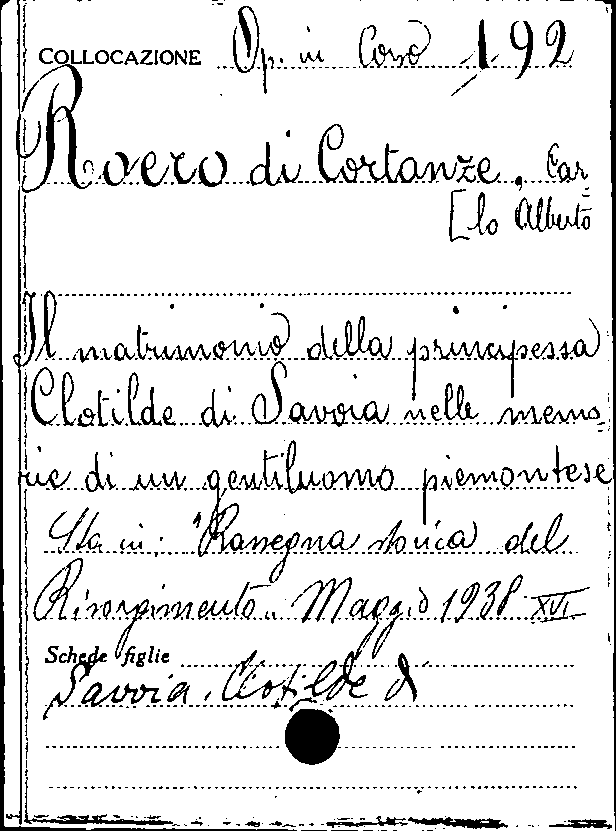 COLLOCAZIONE Op. in Corso 192
Roero di Cortanze, Car=
[lo Alberto
Il matrimonio della principessa
Clotilde di Savoia nelle memo=
rie di un gentiluomo piemontese
Sta in: "Rassegna storica del
Risorgimento" Maggio 1938 XVI
Schede figlie
Savoia, Clotilde di